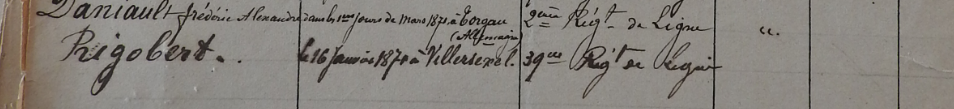 Daniault frédéric Alexandre dans les 1ers jours de Mars 1871 à Torgau (Allemagne) 2ème Régt de Ligne "
Rigobert. le 16 Janvier 1871 à Villersexel. 39me Régt de ligne